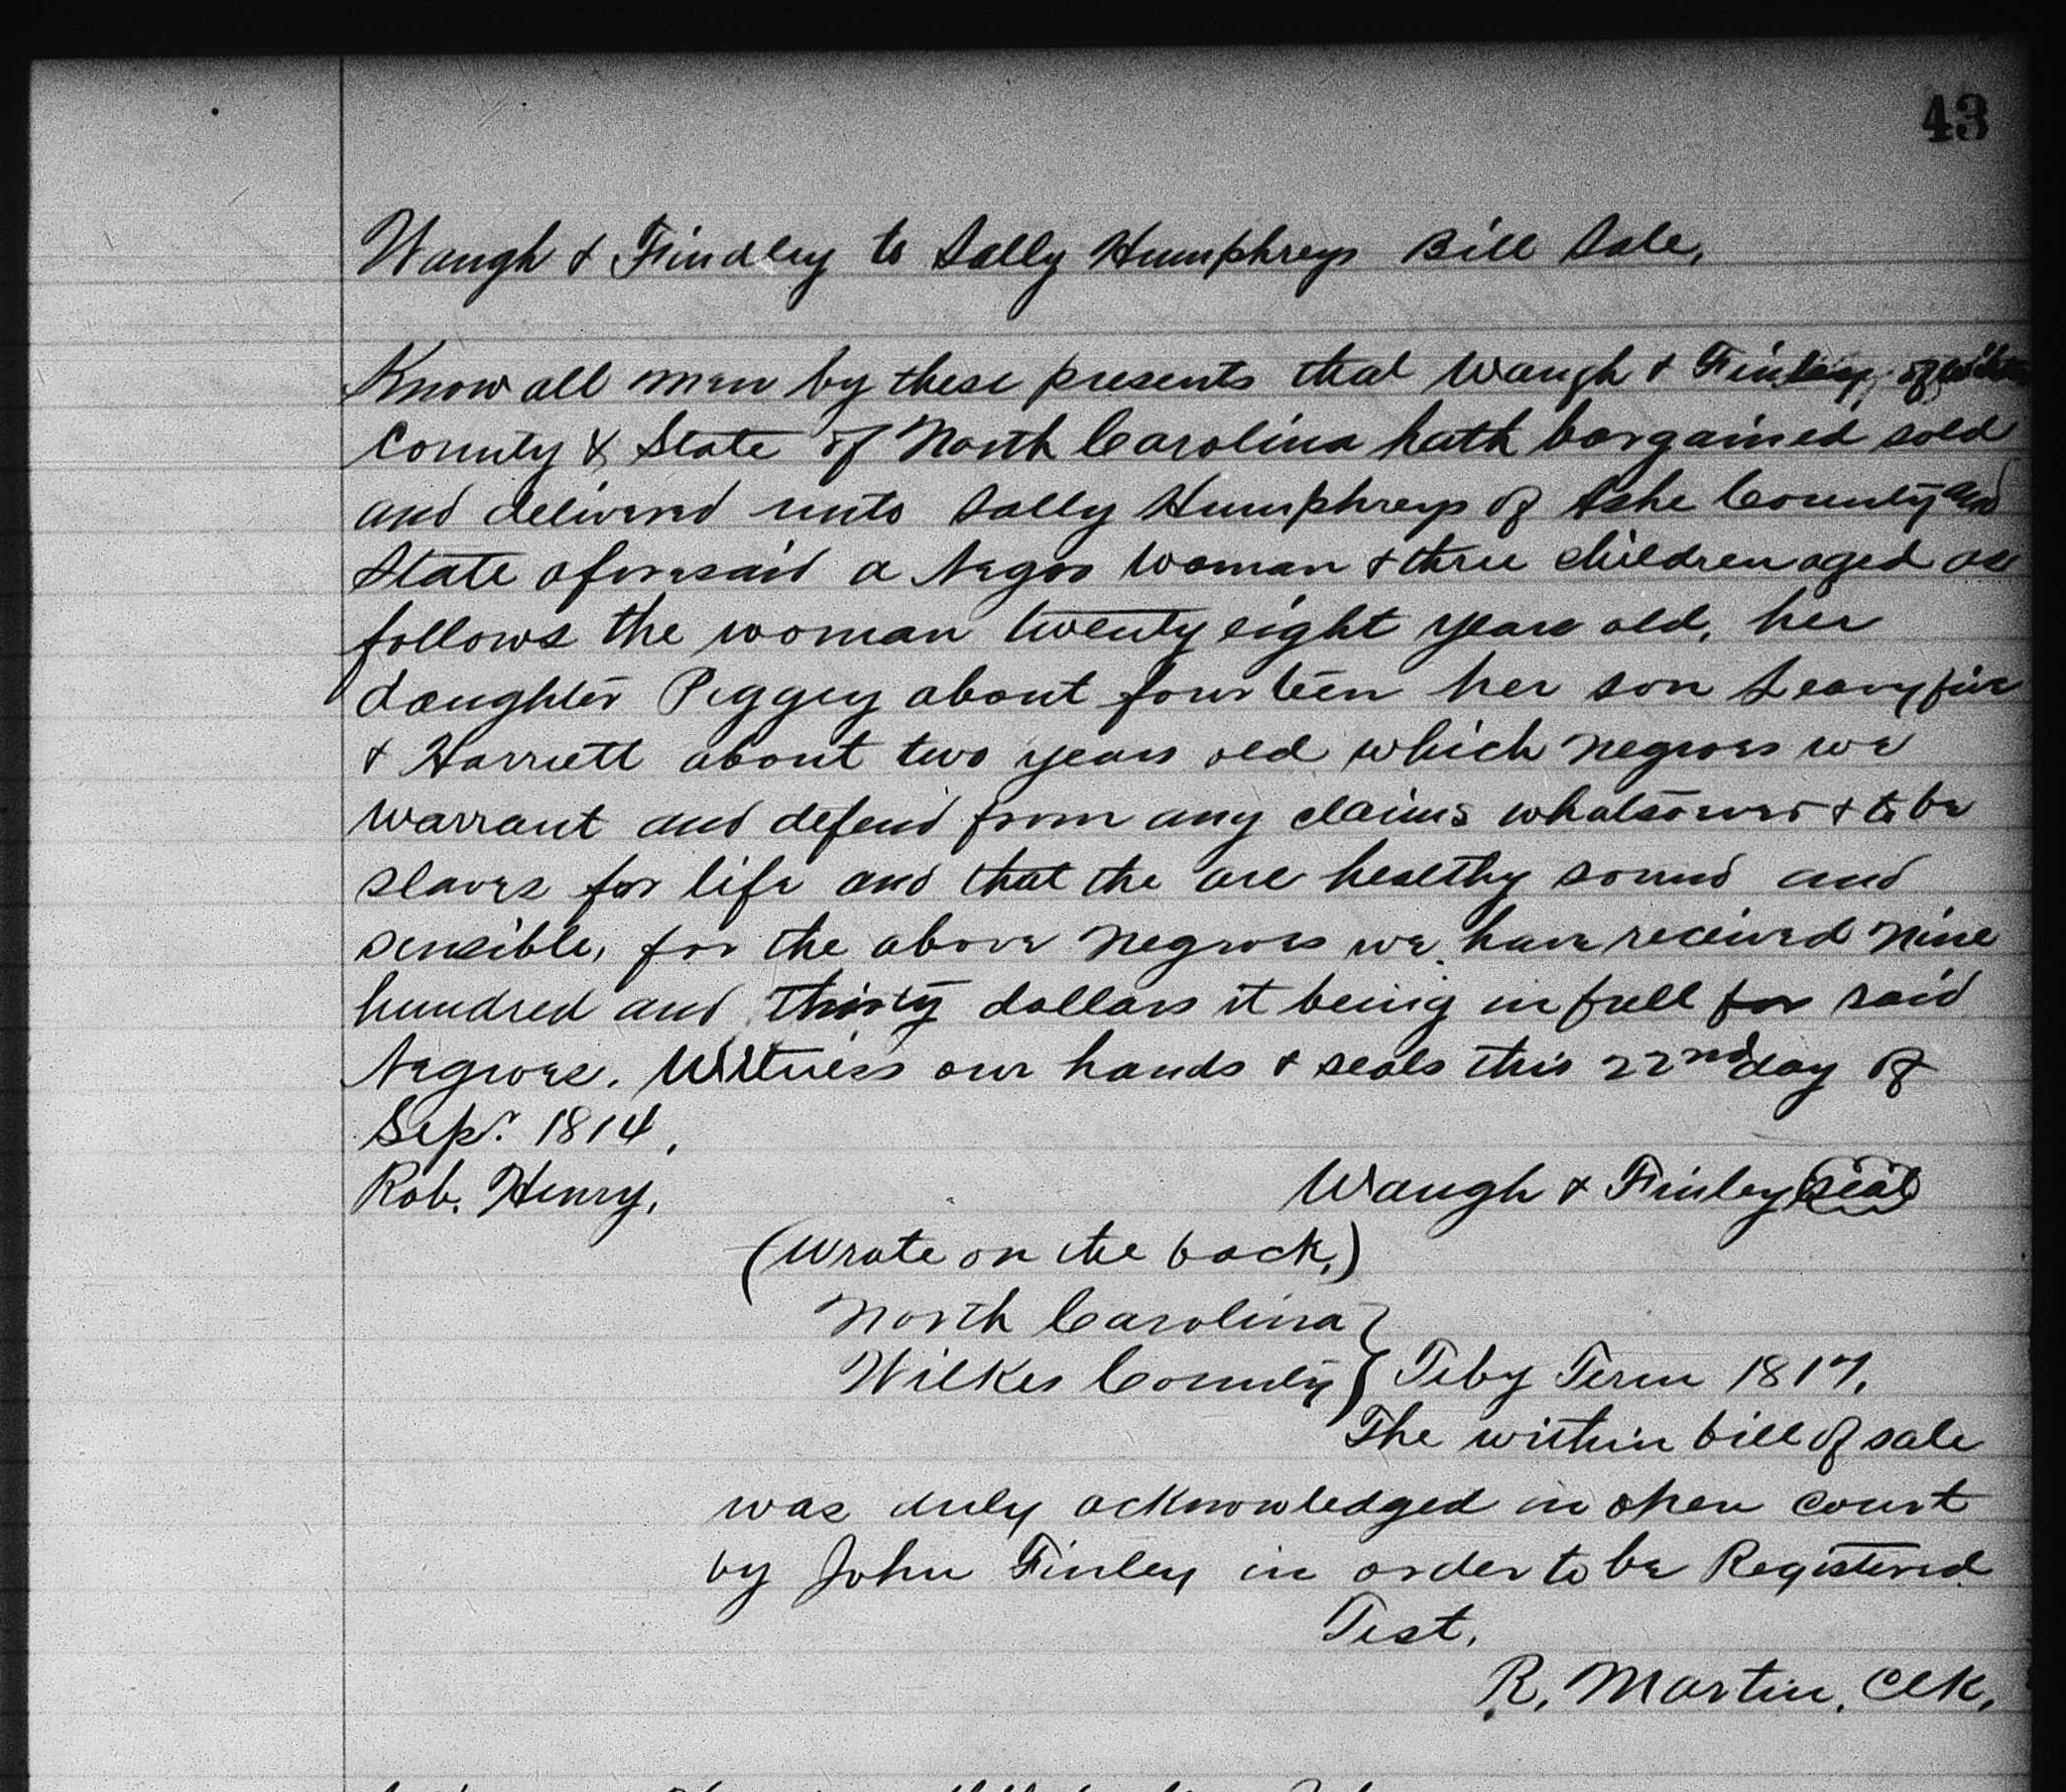 43
Waugh & Findley to Sally Humphreys Bill Sale,
Know all men by these presents that Waugh & Finley, of Wilkes
County & State of North Carolina hath bargained sold
and delivered unto Sally Humphreys of Ashe County and
State aforesaid a Negro Woman & three children aged as
follows the woman twenty eight years old, her
daughter Peggey about fourteen her son Leavy five
& Harriett about two years old which negroes we
warrant and defend from any claims whatsoever & to be
slaves for life and that the are healthy sound and
sensible, for the above negroes we have received nine
hundred and thirty dollars it being in full for said
Negroes. Witness our hands & seals this 22nd day of
Sepr. 1814.
Rob. Henry, Waugh & Finley Seal
(Wrote on the back,)
North Carolina
Wilkes County } Feby Term 1817.
The within bill of sale
was duly acknowledged in open court
by John Finley in order to be Registered
Test.
R. Martin. Clk.